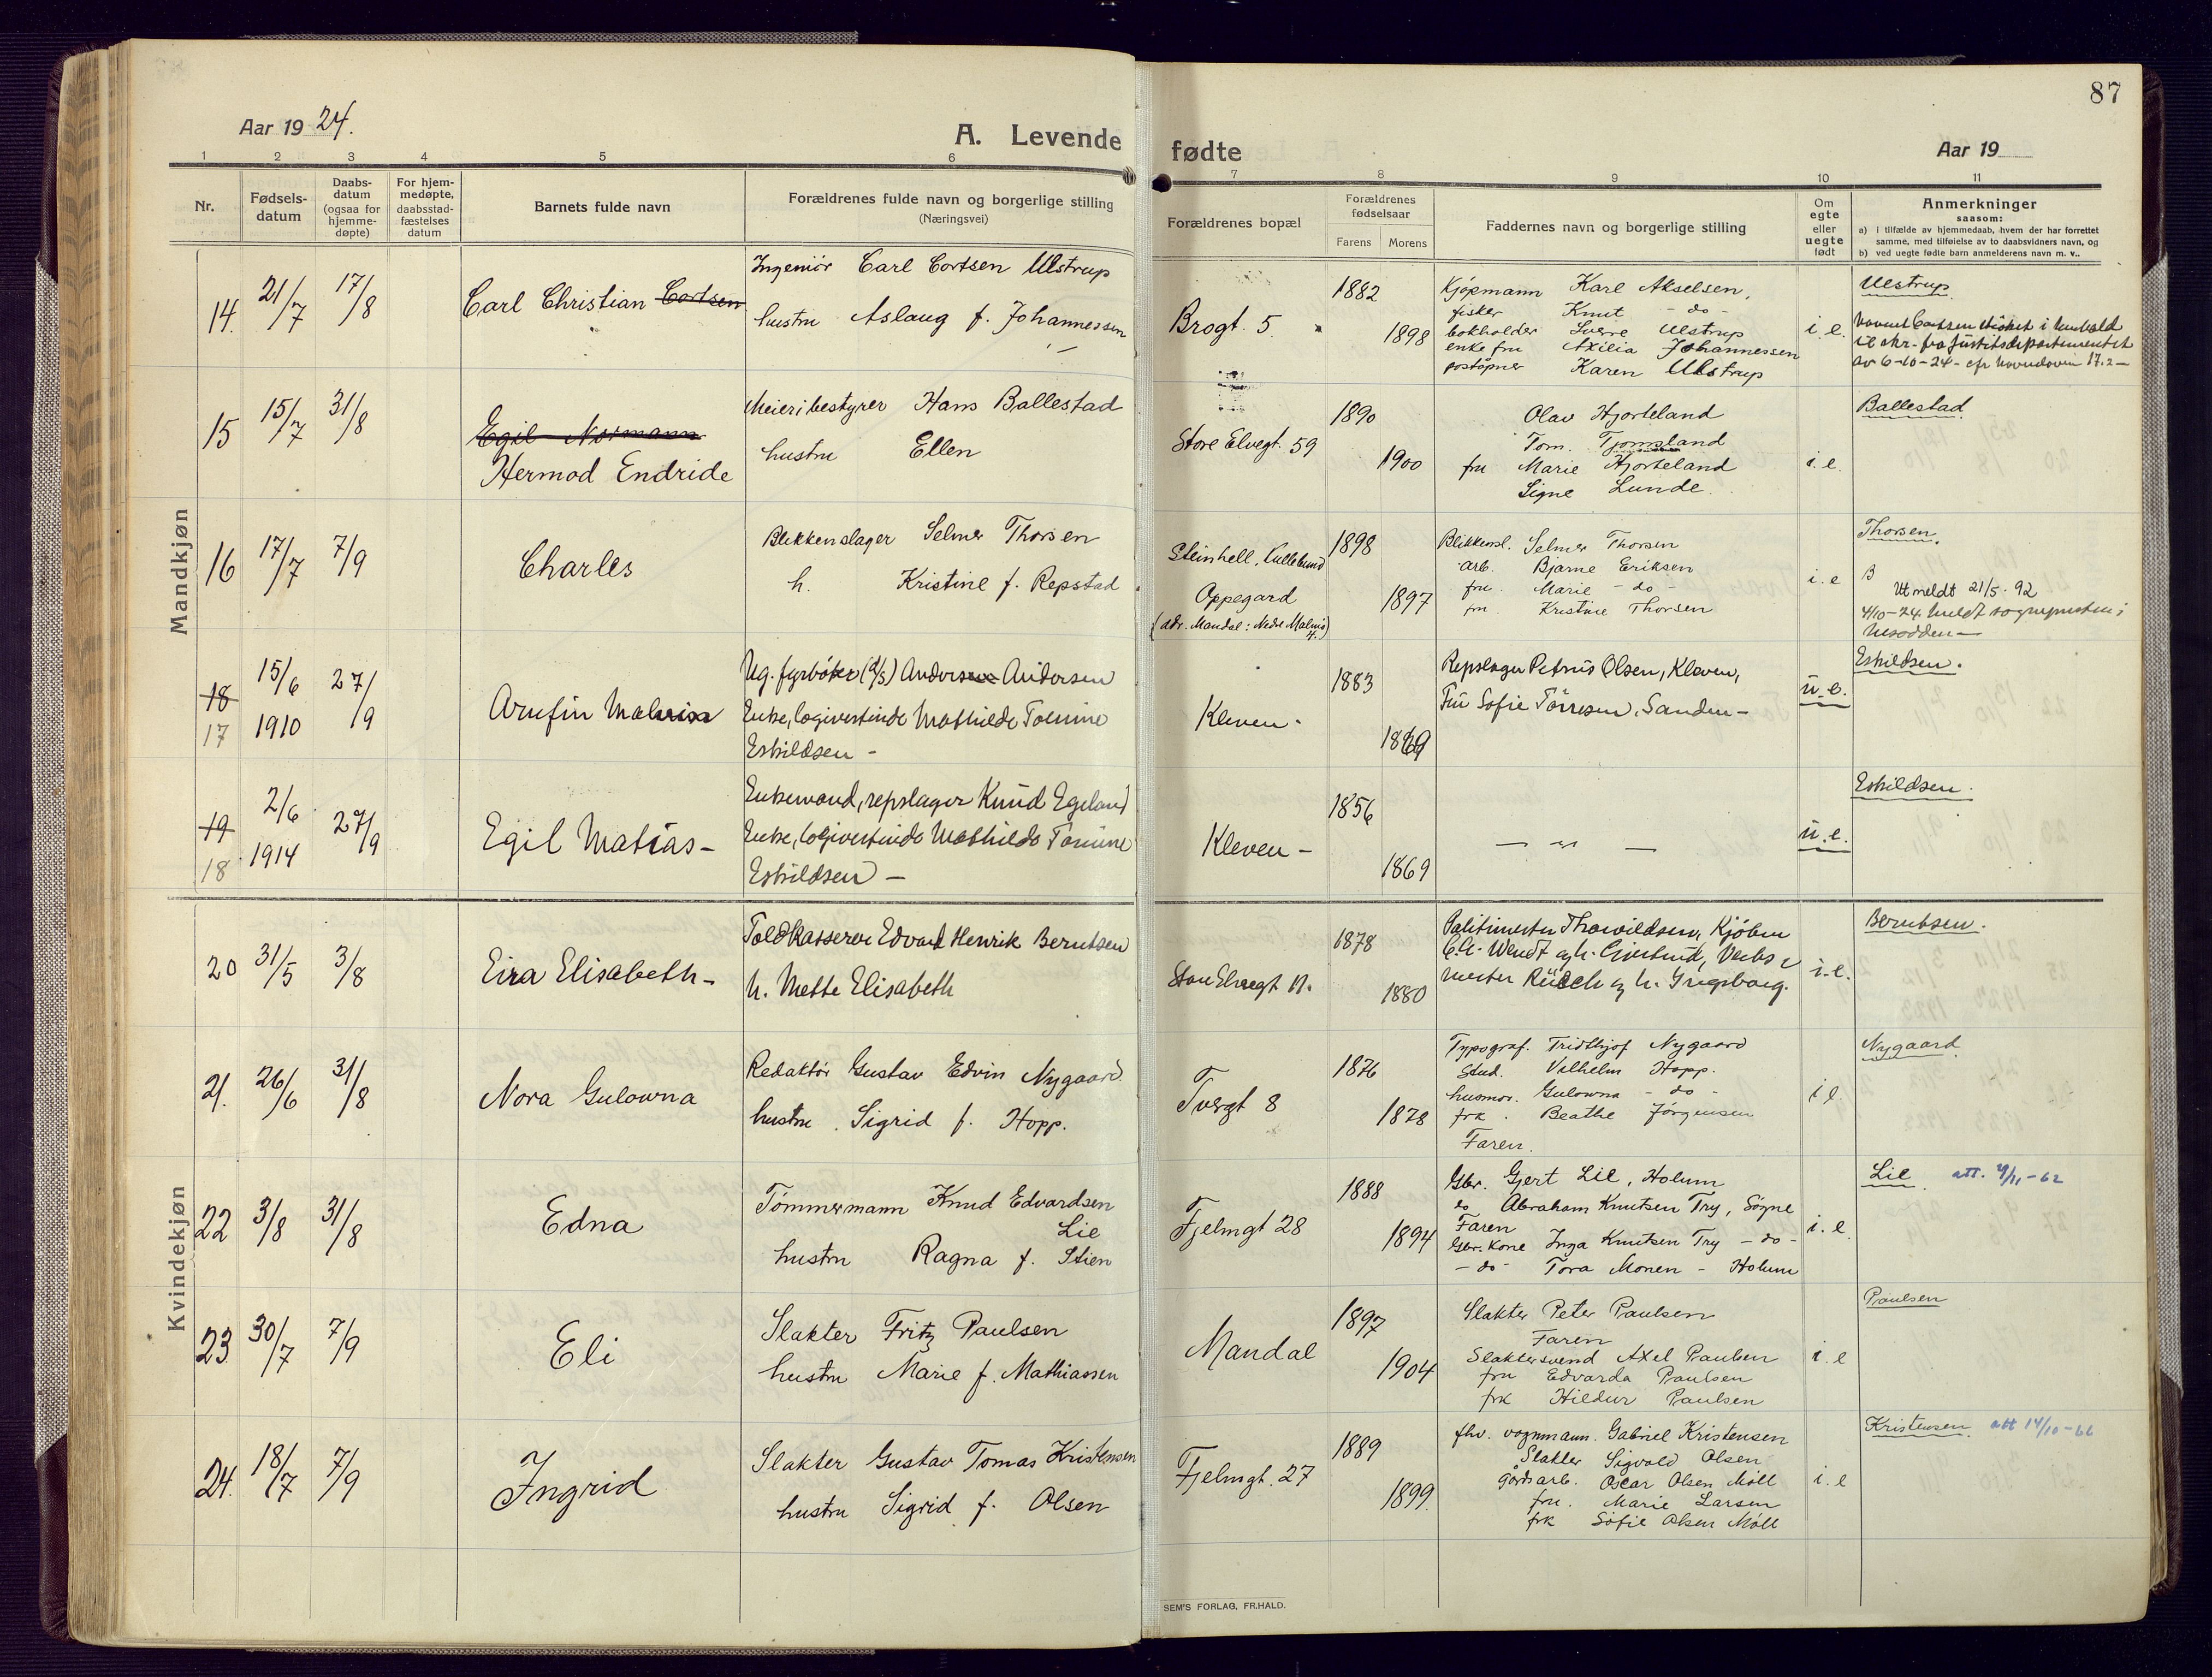 87
Aar 1924.
A. Levende
fødte
Aar 19
1 2 3 4 5 6
7 8 9 10 11
Nr.
Fødsels-
datum
Daabs-
datum
(ogsaa for
hjemme-
døpte)
For hjem-
medøpte,
daabsstad-
fæstelses
datum
Barnets fulde navn
Forældrenes fulde navn og borgerlige stilling
(Næringsvei)
Forældrenes bopæl
Forældrenes
fødselsaar
Farens Morens
Faddernes navn og borgerlige stilling
Om
egte
eller
uegte
født
Anmerkninger
saasom:
a) i tilfælde av hjemmedaab, hvem der har forrettet
samme, med tilføielse av to daabsvidners navn, og
b) ved uegte fødte barn anmelderens navn m. v..
Mandkjøn
14. 21/7 17/8
Carl Christian Cortsen
Ingeniør Carl Cortsen Ulstrup
hustru Aslaug f. Johannessen
Brogt. 5
1882
1898
Kjøpmann Karl Akselsen,
fisker Knut - do -
bokholder Sverre Ulstrup
enke fru Axilia Johannessen
poståpner Karen Ulstrup
i. e.
Ulstrup
av 6-10-24-
15 15/7 31/8
Egil Normann
Hermod Endride
Meieribestyrer Hans Ballestad
hustru Ellen
Store Elvegt. 59
1890
1900
Olav Hjorteland
Tom. Tjomsland
fru Marie Hjorteland
Signe Lunde.
i. e.
Ballestad
16 17/7 7/9
Charles
Blikkenslager Selmer Thorsen
h. Kristine f. Repstad
Steinhell,
Oppegard
(adr. Mandal: Nedre Malmø
1898
1897
Blikkensl. Selmer Thorsen
arb. Bjarne Eriksen
fru. Marie - do -
fru. Kristine Thorsen
i. e
Thorsen.
B
Utmeldt 21/5. 92
4/10-24 meldt sognepresten i
Nesodden-
18
17
15/6
1910
27/9
Arnfin
Ug. fyrbøter Andersen Andersen
Enke, logivertinde Mathilde Tomine
Eskildsen -
Kleven -
1883
1869
Repslager Petrus Olsen, Kleven,
Fru Sofie Tørresen, Sanden -
u. e.
Eskildsen.
19
18
2/6
1914
27/9
Egil Matias -
Enkemand, repslager Knud Egeland
Enke, logivertinde Mathilde Tomine
Eskildsen -
Kleven -
1856
1869
— " —
u. e.
Eskildsen.
Kvindekjøn
20 31/5 3/8
Eira Elisabeth -
Toldkasserer Edvard Henrik Berntsen
h. Mette Elisabeth
1878
1880
Politimester Thorvildsen, Kjøbm
i. e.
Berntsen.
21. 26/6 31/8
Nora Gulowna
Redaktør Gustav Edvin Nygaard.
hustru Sigrid f. Hopp.
Tvergt 8
1876
1878
Typograf. Fridthjof Nygaard
Stud. Vilhelm Hopp.
husmor. Gulowna - do -
frk. Beathe Jörgensen
Faren.
i e.
Nygaard
22 3/8 31/8
Edna
Tömmermann Knud Edvardsen
Lie
hustru Ragna f. Stien
Fjelmgt 28
1888
1894
Gbr. Gjert Lie, Holum
do Abraham Knutsen Try, Søgne
Faren
Gbr. Kone Inga Knutsen Try - do -
- do - Tora Monen - Holum
i. e.
Lie att. 4/11-62
23 30/7 7/9
Eli
Slakter Fritz Paulsen
hustru Marie f. Mathiassen
Mandal
1897
1904
Slakter Peter Paulsen
Faren
Slaktersvend Axel Paulsen
fru Edvarda Paulsen
frk Hildur Paulsen
i. e
Paulsen
24. 18/7 7/9
Ingrid
Slakter Gustav Tomas Kristensen
hustru Sigrid f. Olsen
Fjelmgt. 27
1889
1899.
fhv. vognmann. Gabriel Kristensen
Slakter Sigvald Olsen
gårdsarb. Oscar Olsen Möll
fru. Marie Larsen
frk Sofie Olsen Möll
i. e
Kristensen att 14/10-66
SEM'S FORLAG, FR.HALD.